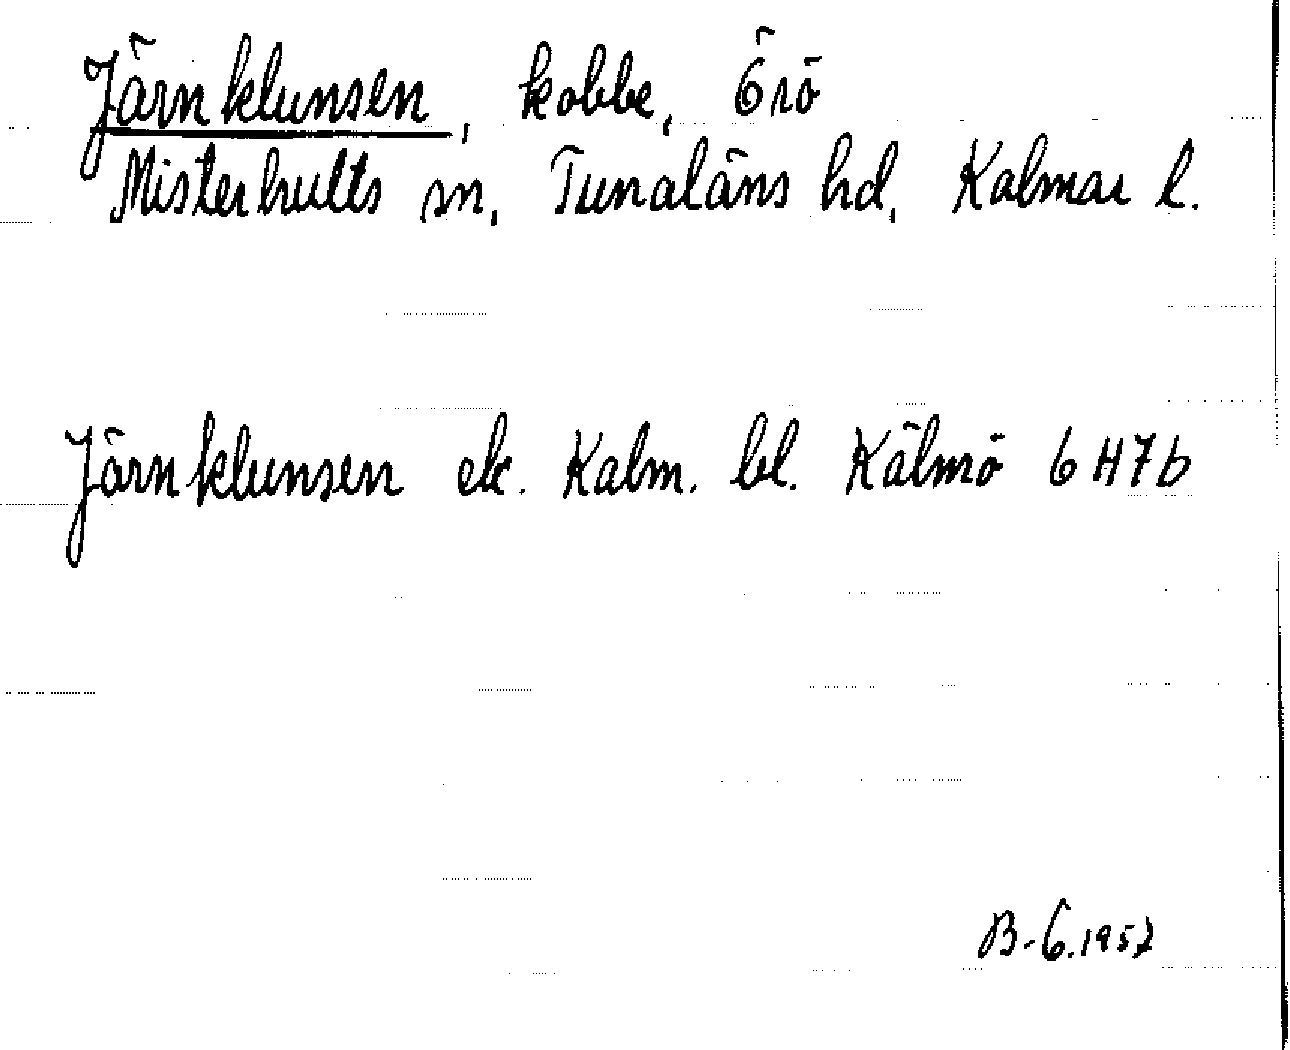 Järnklunsen, kobbe, Örö
Misterhults sn, Tunaläns hd, Kalmar l.
Järnklunsen ek. Kalm. bl. Kälmö 6 H7b
B-G.1952